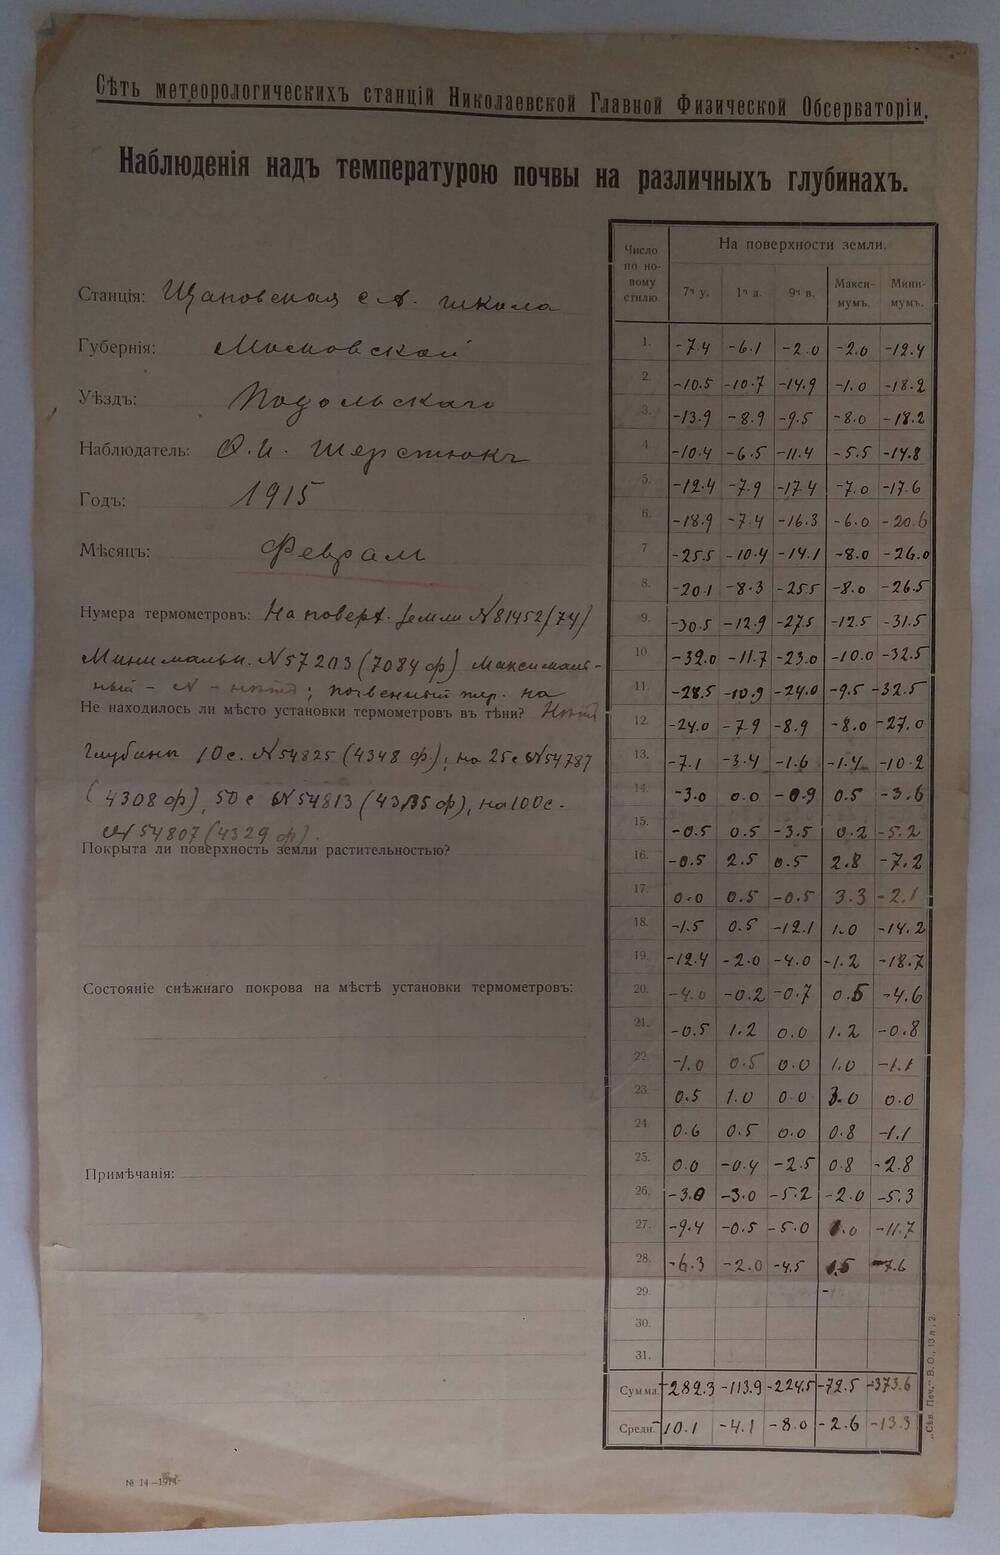 Сѣть метеорологическихъ станцій Николаевской Главной Физической Обсерваторіи.
Наблюденія надъ температурою почвы на различныхъ глубинахъ.
Станція: Щаповская с.х. школа
Губернія: Московской
Уѣздъ: Подольскаго
Наблюдатель: О.И. Шерстюкъ
Годъ: 1915
Мѣсяцъ: Февраль
Нумера термометровъ: На поверх. земли N 81452/74/
Минимальн. N 57203 (7084 ф) Максималь-
ный - N - ; почвенный тер. на
Не находилось ли мѣсто установки термометровъ въ тѣни?
глубинѣ 10 с. N 54825 (4348 ф.), на 25 с N 54787
(4308 ф), 50 с N 54813 (4335 ф), на 100 с.
N 54807 (4329 ф).
Покрыта ли поверхность земли растительностью?
Состояніе снѣжнаго покрова на мѣстѣ установки термометровъ:
Примѣчанія:
№ 14.—1914
Число по новому стилю. На поверхности земли.
7ч у. 1ч д. 9ч в. Макси-мумъ. Мини-мумъ.
1. -7.4 -6.1 -2.0 -2.0 -12.4
2. -10.5 -10.7 -14.9 -1.0 -18.2
3. -13.9 -8.9 -9.5 -8.0 -18.2
4 -10.4 -6.5 -11.4 -5.5 -14.8
5. -12.4 -7.9 -17.4 -7.0 -17.6
6. -18.9 -7.4 -16.3 -6.0 -20.6
7 -25.5 -10.4 -14.1 -8.0 -26.0
8. -20.1 -8.3 -25.5 -8.0 -26.5
9. -30.5 -12.9 -27.5 -12.5 -31.5
10. -32.0 -11.7 -23.0 -10.0 -32.5
11. -28.5 -10.9 -24.0 -9.5 -32.5
12. -24.0 -7.9 -8.9 -8.0 -27.0
13. -7.1 -3.4 -1.6 -1.4 -10.2
14. -3.0 0.0 -0.9 0.5 -3.6
15. -0.5 0.5 -3.5 0.2 -5.2
16. -0.5 2.5 0.5 2.8 -7.2
17. 0.0 0.5 -0.5 3.3 -2.1
18. -1.5 0.5 -12.1 1.0 -14.2
19. -12.4 -2.0 -4.0 -1.2 -18.7
20. -4.0 -0.2 -0.7 0.5 -4.6
21. -0.5 1.2 0.0 1.2 -0.8
22. -1.0 0.5 0.0 1.0 -1.1
23. 0.5 1.0 0.0 3.0 0.0
24 0.6 0.5 0.0 0.8 -1.1
25. 0.0 -0.4 -2.5 0.8 -2.8
26. -3.0 -3.0 -5.2 -2.0 -5.3
27. -9.4 -0.5 -5.0 1.0 -11.7
28. -6.3 -2.0 -4.5 1.5 -7.6
29.
30.
31.
Сумма. -282.3 -113.9 -224.5 -72.5 -373.6
Средн. -10.1 -4.1 -8.0 -2.6 -13.3
„Сѣв. Печ.“ В. О., 13 л., 2.